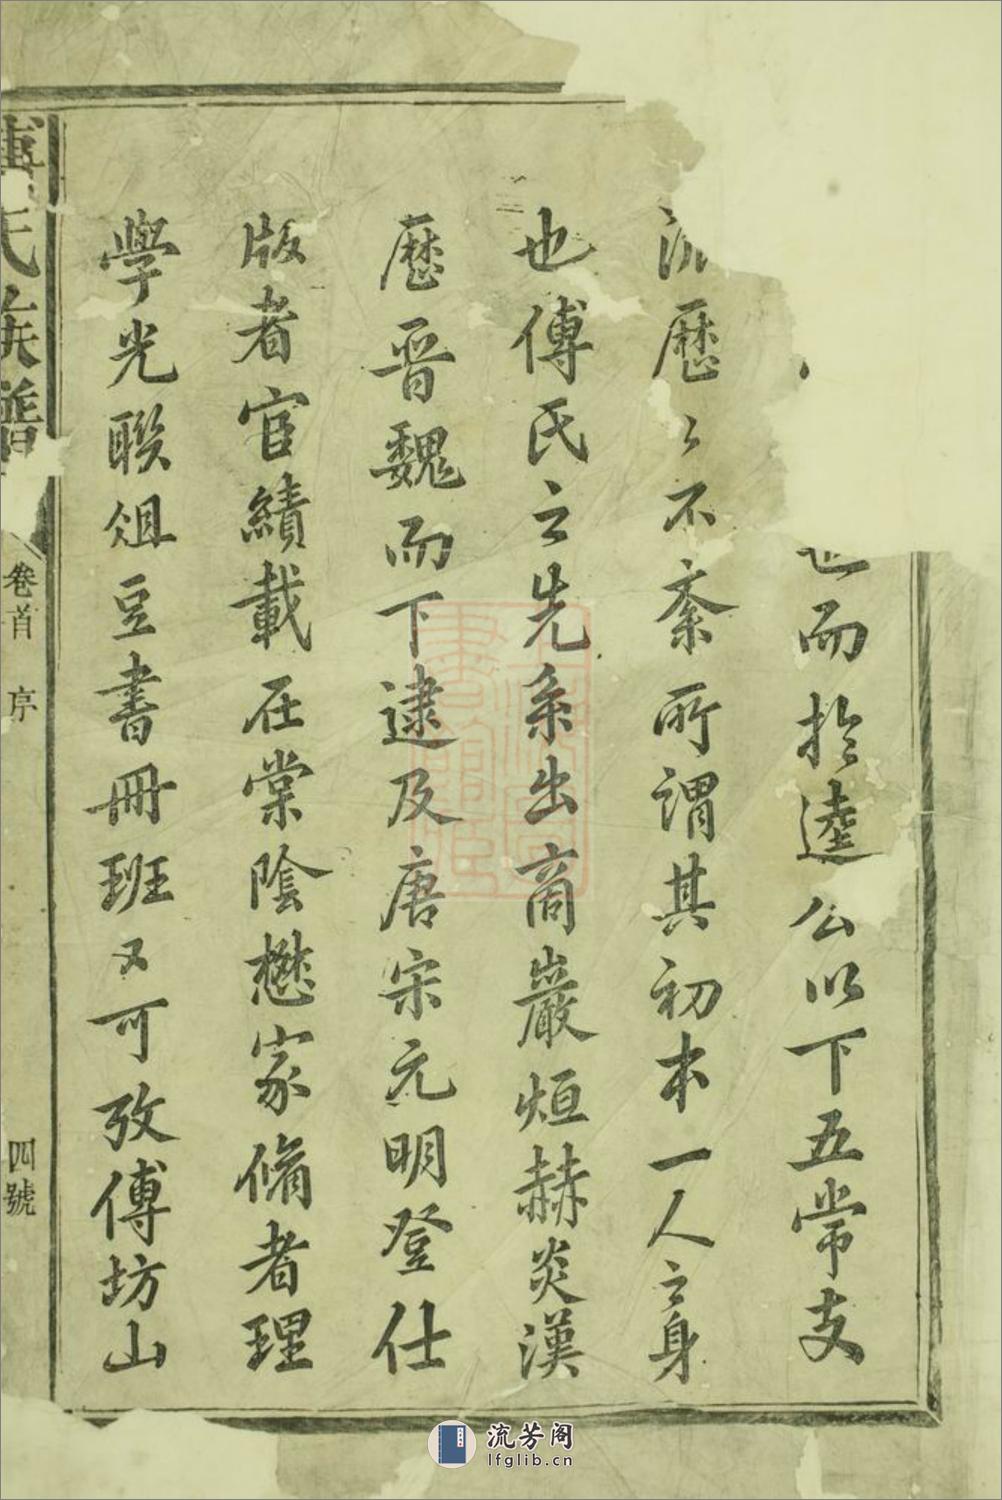 也而於逵公以下五常支
流歷〻不紊所謂其初本一人之身
也傅氏之先系出商巖烜赫炎漢
歷晉魏而下逮及唐宋元明登仕
版者宦績載在棠陰懋家脩者理
學光聯俎豆書冊班又可攷傅坊山
傅氏族譜
卷首 序
四號
流芳阁
lfglib.cn